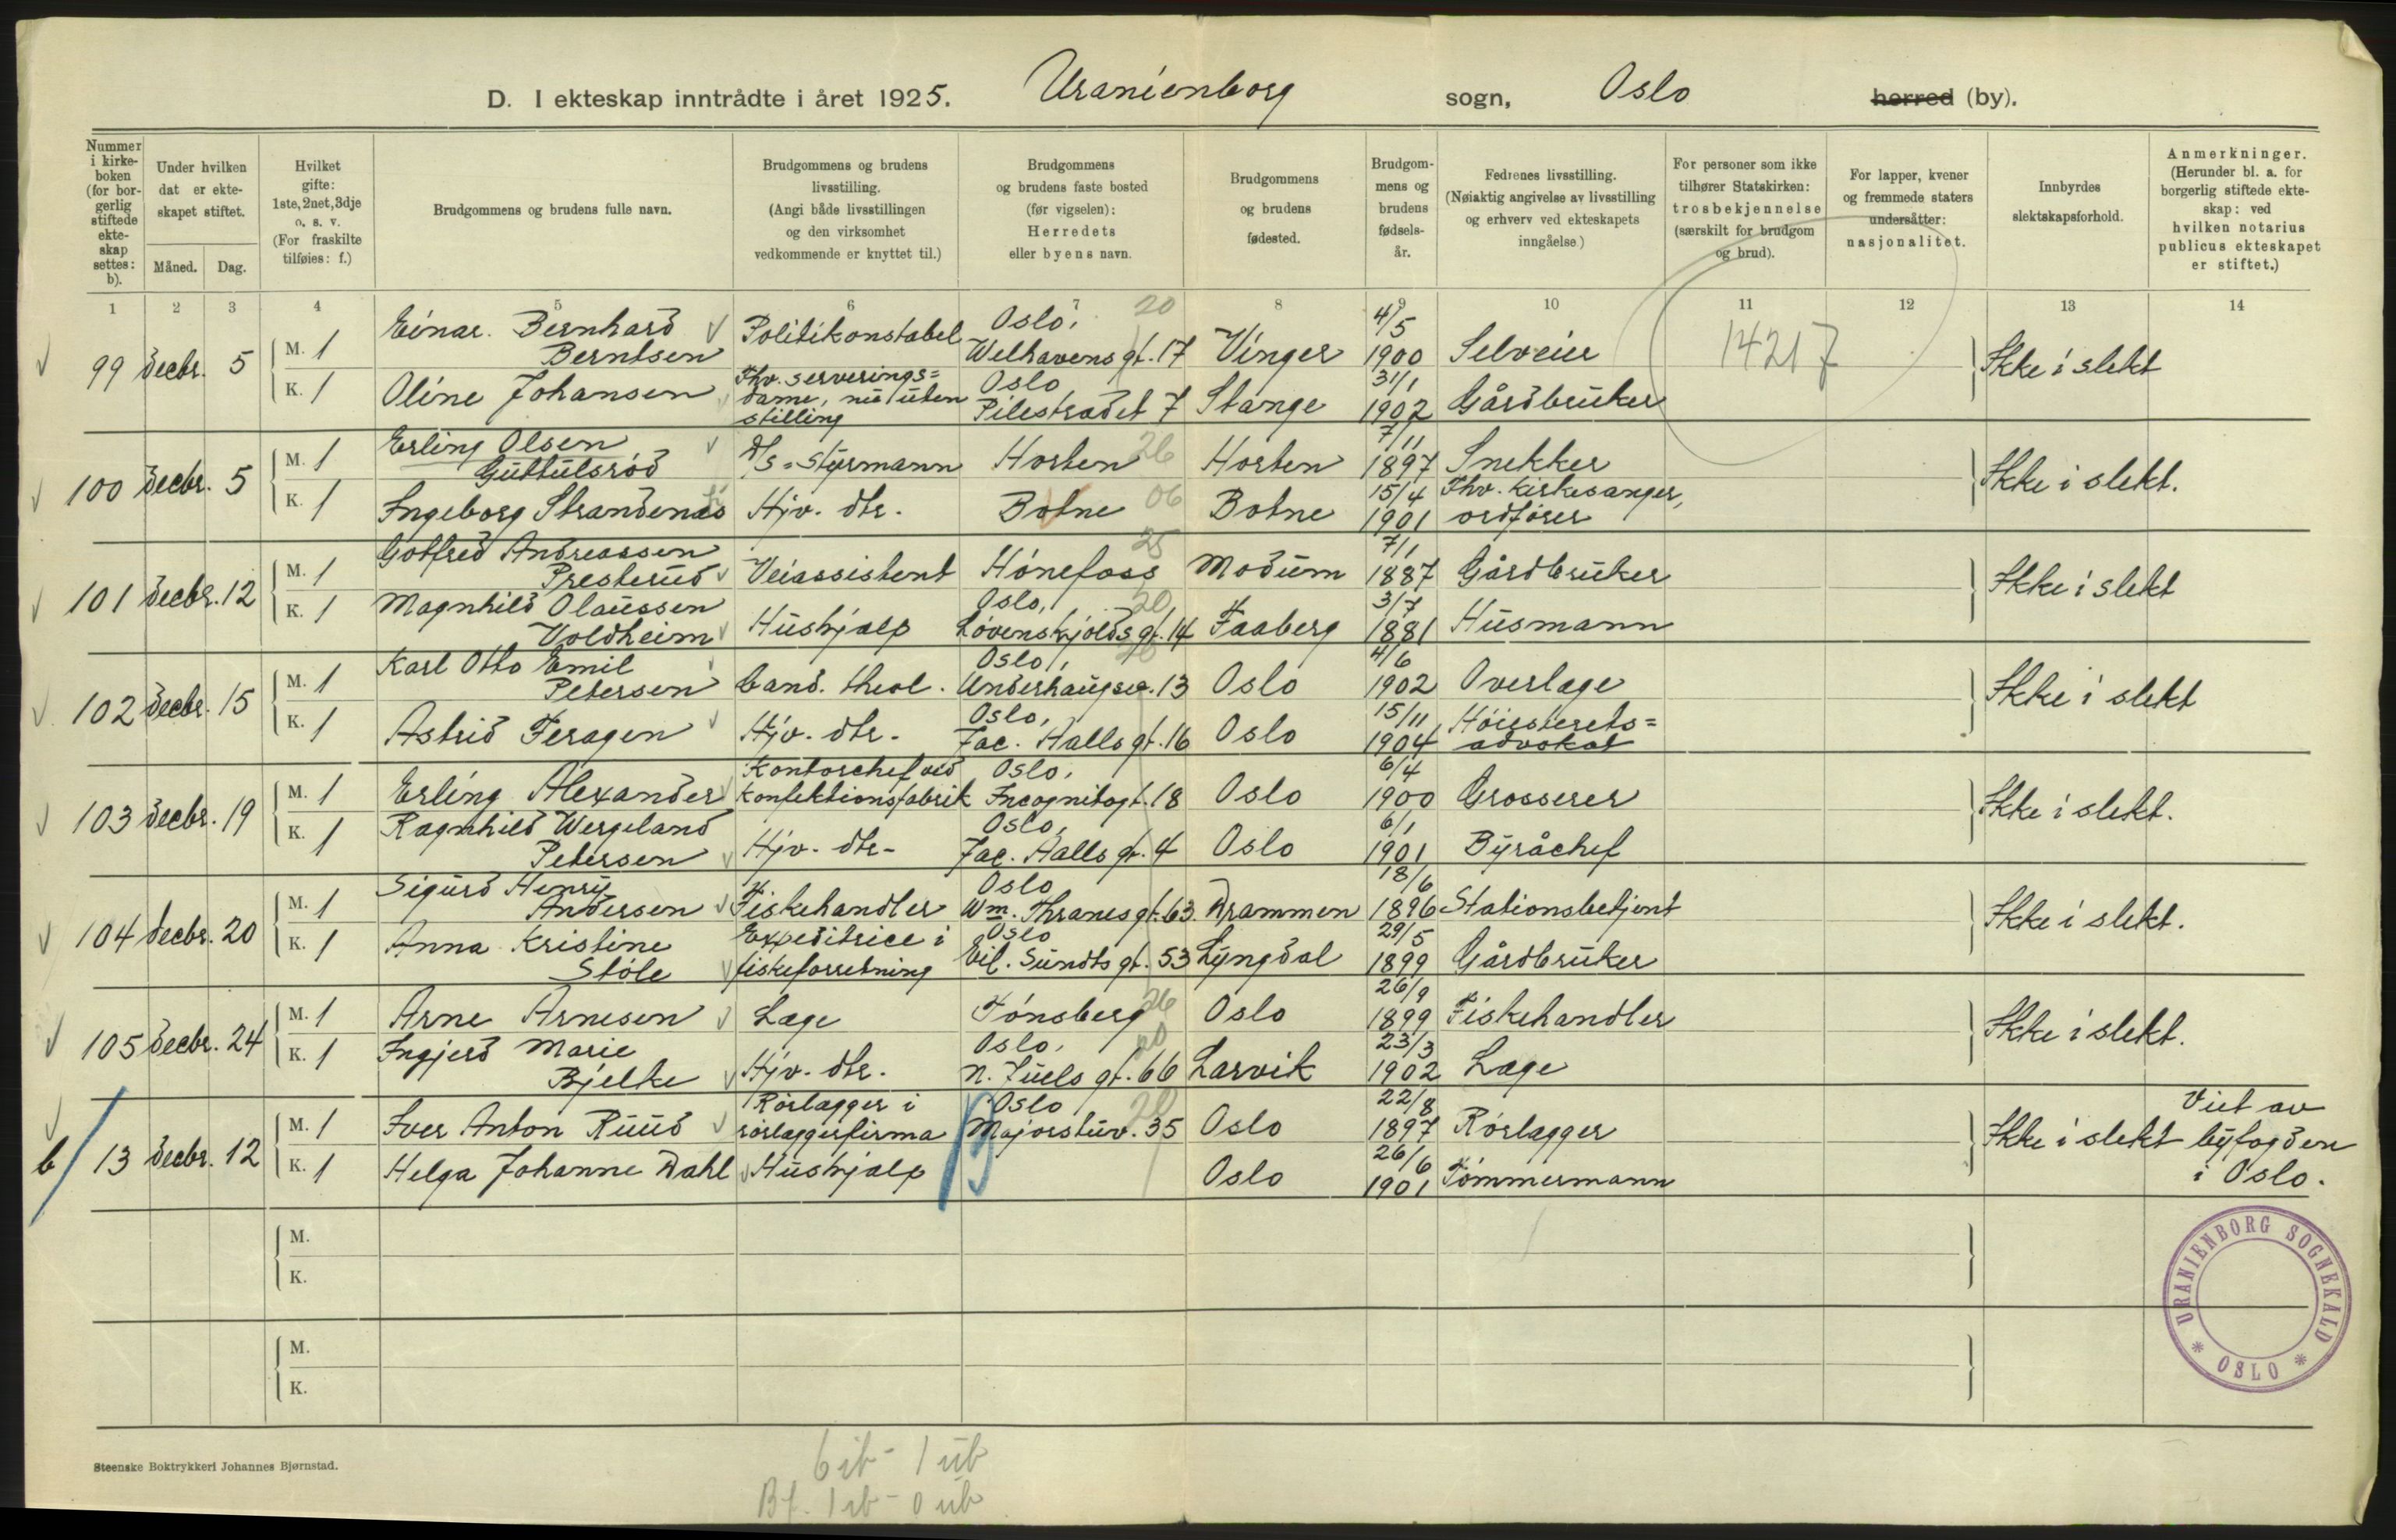 D. I ekteskap inntrådte i året 1925. Uranienborg sogn, Oslo herred (by).
Nummer i kirke- boken (for bor- gerlig stiftede ekte- skap settes: b).
Under hvilken dat er ekte- skapet stiftet.
Måned. Dag.
Hvilket gifte: 1ste, 2net, 3dje o. s. v. (For fraskilte tilføies: f.)
Brudgommens og brudens fulle navn.
Brudgommens og brudens livsstilling. (Angi både livsstillingen og den virksomhet vedkommende er knyttet til.)
Brudgommens og brudens faste bosted (før vigselen): Herredets eller byens navn.
Brudgommens og brudens fødested.
Brudgom- mens og brudens fødsels- år.
Fedrenes livsstilling. (Nøiaktig angivelse av livsstilling og erhverv ved ekteskapets inngåelse)
For personer som ikke tilhører Statskirken: trosbekjennelse (særskilt for brudgom og brud).
For lapper, kvener og fremmede staters undersåtter: nasjonalitet.
Innbyrdes slektskapsforhold.
Anmerkninger. (Herunder bl. a. for borgerlig stiftede ekte- skap: ved hvilken notarius publicus ekteskapet er stiftet.)
1 2 3 4 5 6 7 8 9 10 11 12 13 14
99 Decbr. 5 M. 1 Einar Bernhard Berntsen Politikonstabel Oslo, Welhavens gt. 17 20 Vinger 4/5 1900 Selveier 14217 Ikke i slekt
K. 1 Oline Johansen Fhv. serverings= dame, nu uten stilling Oslo Pilestrædet 7 Stange 31/1 1902 Gårdbruker
100 Decbr. 5 M. 1 Erling Olsen Guttulsrød D/S=styrmann Horten 26 Horten 7/11 1897 Snekker Ikke i slekt.
K. 1 Ingeborg Strandenæs Hjv. dtr. Botne 06 Botne 15/4 1901 Fhv. kirkesanger, ordfører
101 Decbr. 12 M. 1 Gotfred Andreassen Presterud Veiassistent Hönefoss 25 Modum 7/1 1887 Gårdbruker Ikke i slekt
K. 1 Magnhild Olaussen Voldheim Hushjælp Oslo, Løvenskjolds gt. 14 20 Faaberg 3/7 1881 Husmann
102 Decbr. 15 M. 1 Karl Otto Emil Petersen Cand. theol. Oslo, Underhaugsv. 13 Oslo 4/6 1902 Overlæge Ikke i slekt
K. 1 Astrid Feragen Hjv. dtr. Oslo, Jac. Aalls gt. 16 Oslo 15/11 1904 Höiesterets= advokat
103 Decbr. 19 M. 1 Erling Alexander Kontorchef ved konfektionsfabrik Oslo, Incognitogt. 18 Oslo 6/4 1900 Grosserer Ikke i slekt.
K. 1 Ragnhild Wergeland Petersen Hjv. dtr. Oslo, Jac. Aalls gt. 4 Oslo 6/1 1901 Byråchef
104 Decbr. 20 M. 1 Sigurd Henry Andersen Fiskehandler Oslo Wm. Thranes gt. 63 Drammen 18/6 1896 Stationsbetjent Ikke i slekt.
K. 1 Anna Kristine Støle Expeditrice i fiskeforretning Oslo Eil. Sundts gt. 53 Lyngdal 29/5 1899 Gårdbruker
105 Decbr. 24 M. 1 Arne Arnesen Læge Tönsberg 26 Oslo 26/9 1899 Fiskehandler Ikke i slekt.
K. 1 Ingjerd Marie Bjelke Hjv. dtr. Oslo, N. Juels gt. 66 20 Larvik 23/3 1902 Læge
b 13 Decbr. 12 M. 1 Iver Anton Ruud Rörlægger i rörlæggerfirma Oslo Majorstuv. 35 20 Oslo 22/8 1897 Rörlægger Ikke i slekt Viet av byfogden i Oslo.
K. 1 Helga Johanne Dahl Hushjælp Oslo 26/6 1901 Tömmermann
M.
K.
M.
K.
URANIENBORG SOGNEKALD * OSLO *
Steenske Boktrykkeri Johannes Bjørnstad.
6 ib - 1 ub
Bf. 1 ib - 0 ub